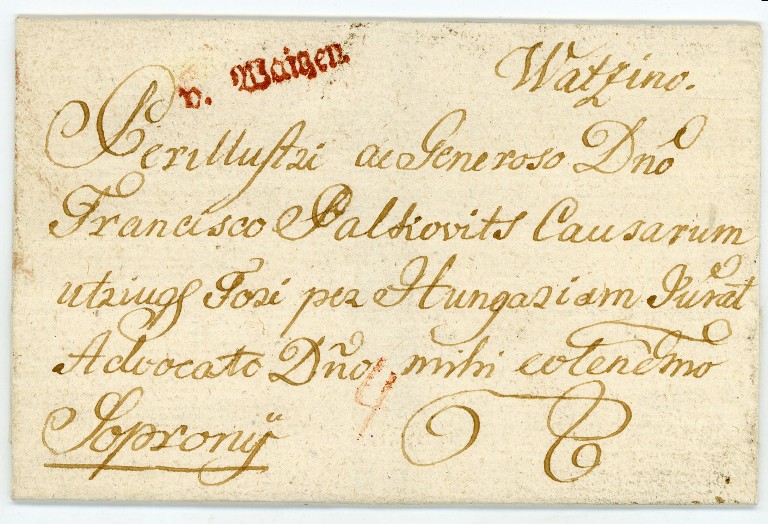 v. Waitzen.
Watzino.
Perillustri ac Generoso Dño
Francisco Palkovits Causarum
utriusq Fori per Hungariam Jurat
Advocato Dño mihi colendmo
4
Soprony